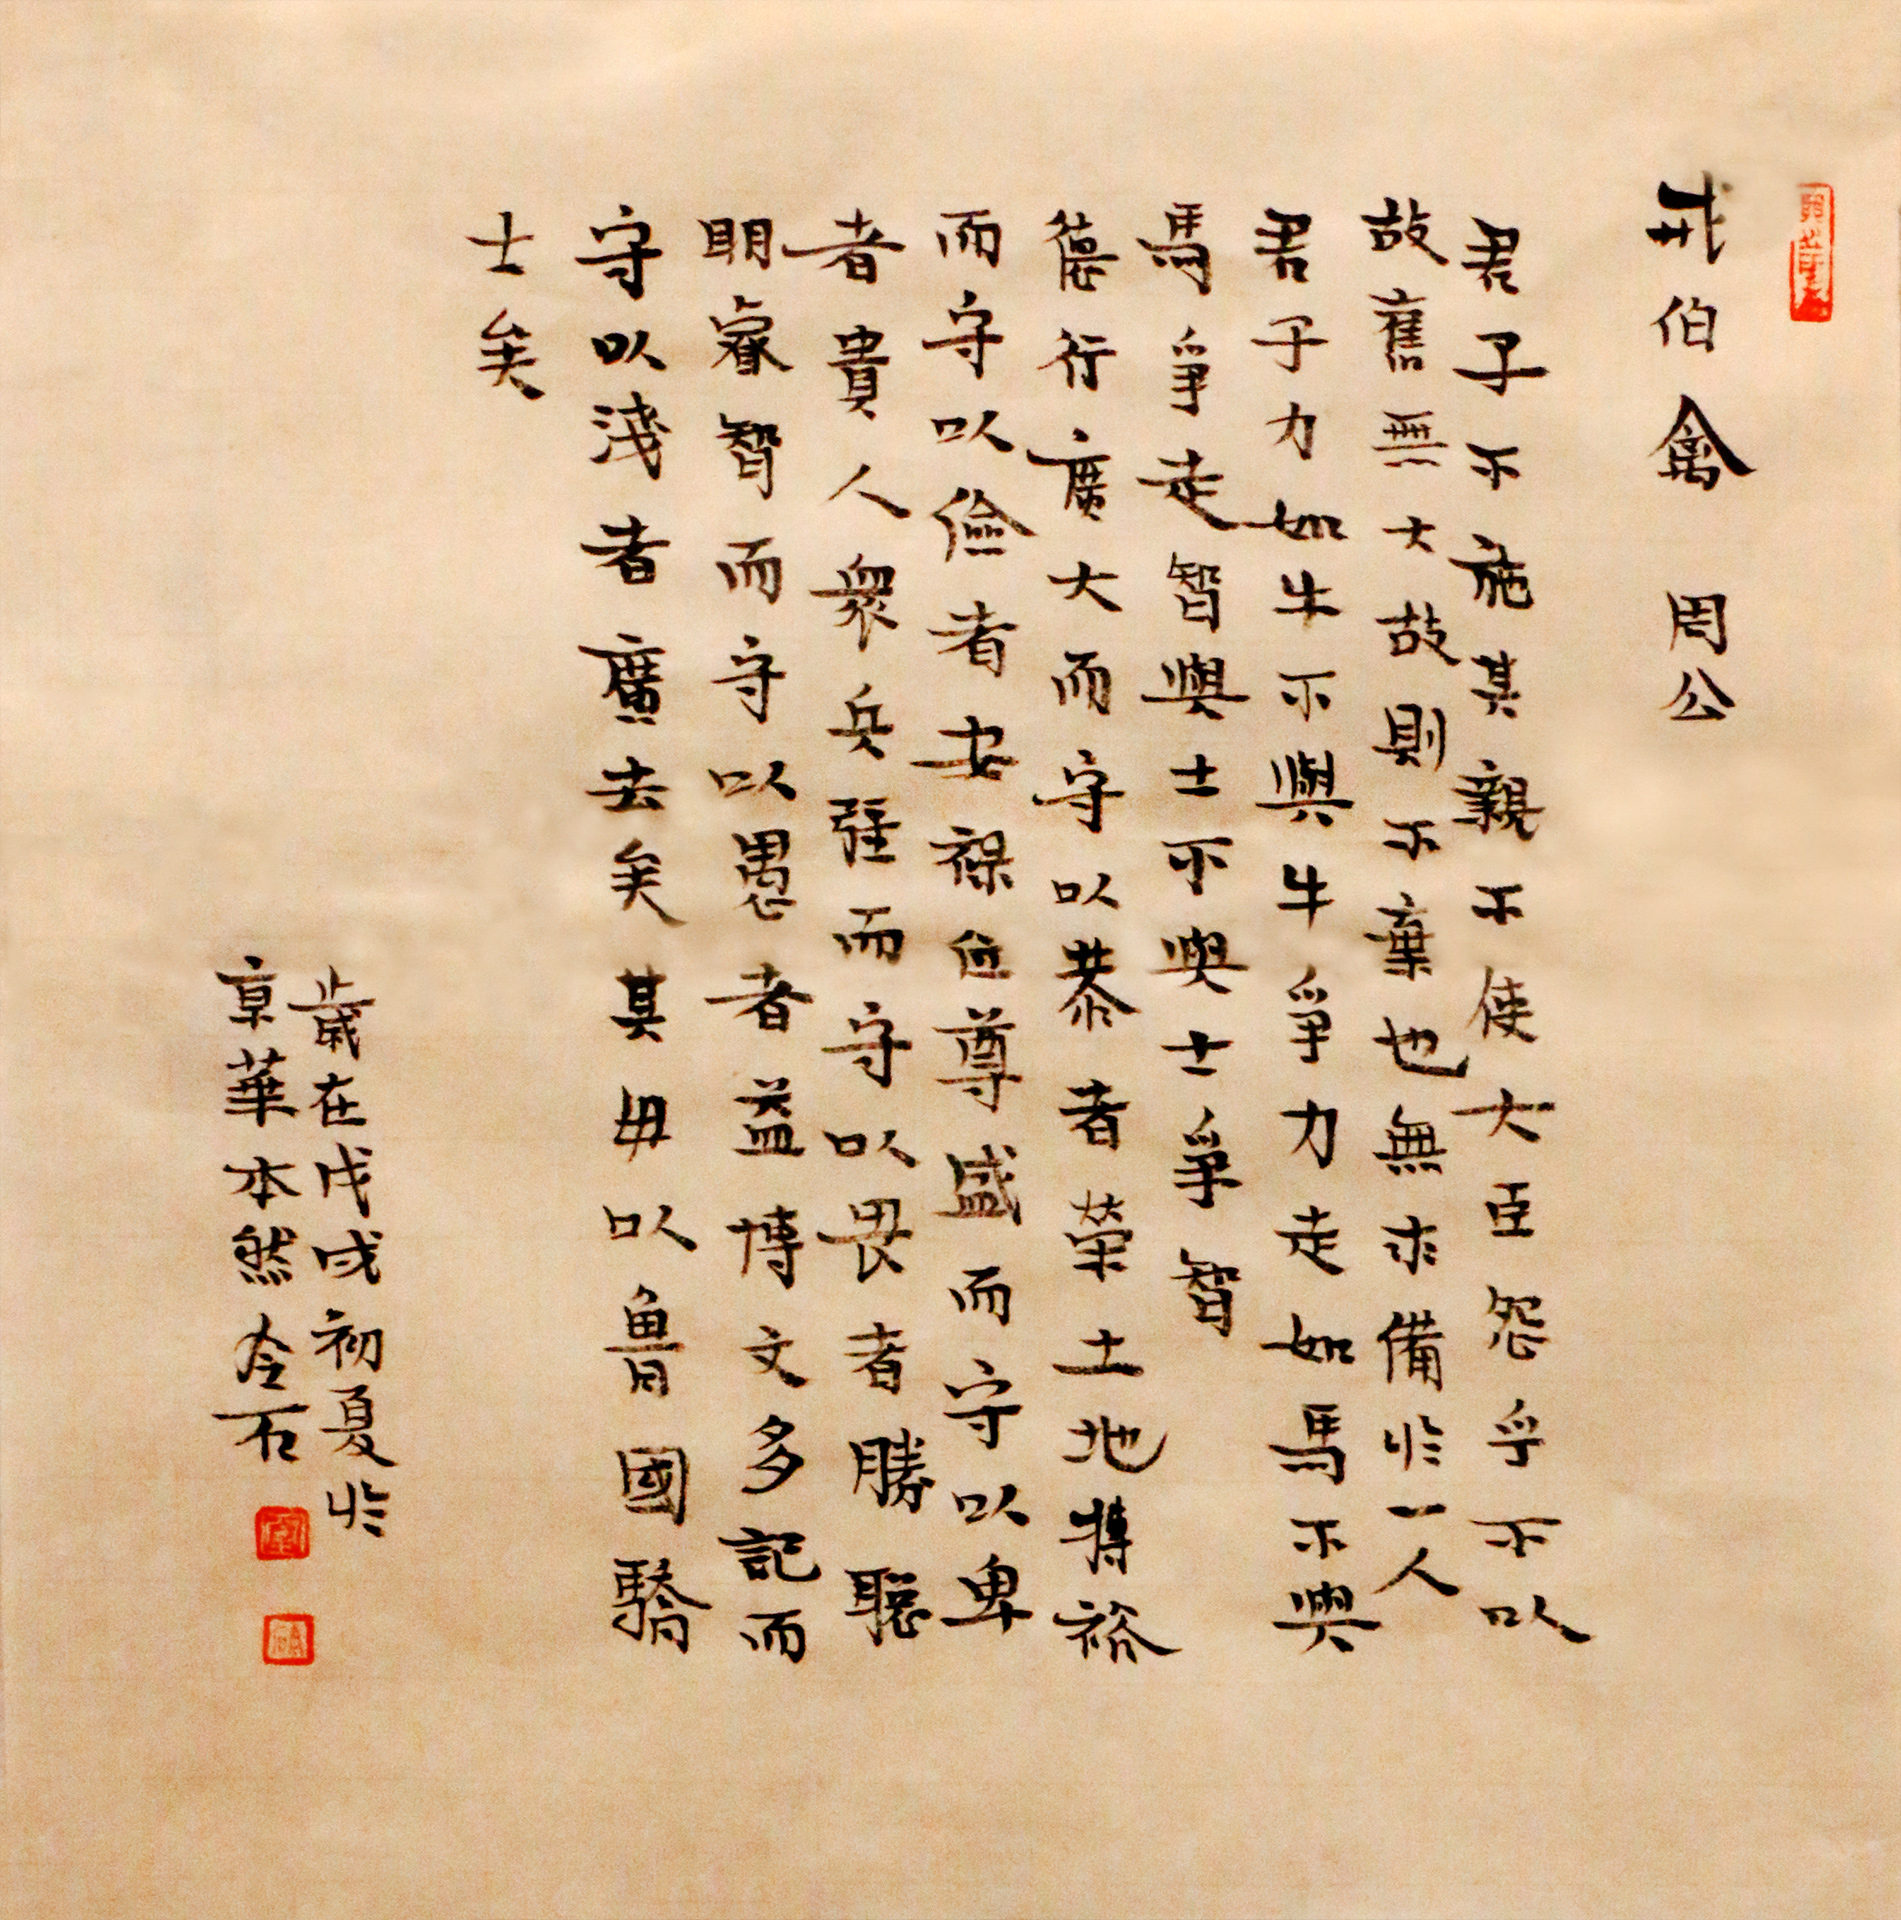 戒伯禽 周公
君子不施其親不使大臣怨乎不以
故舊無大故則不棄也無求備於一人
君子力如牛不與牛爭力走如馬不與
馬爭走智與士不與士爭智
德行廣大而守以恭者榮土地博裕
而守以儉者安祿位尊盛而守以卑
者貴人衆兵強而守以畏者勝聰
明睿智而守以愚者益博文多記而
守以淺者廣去矣其毋以魯國驕
士矣
歲在戊戌初夏於
京華本然冷石